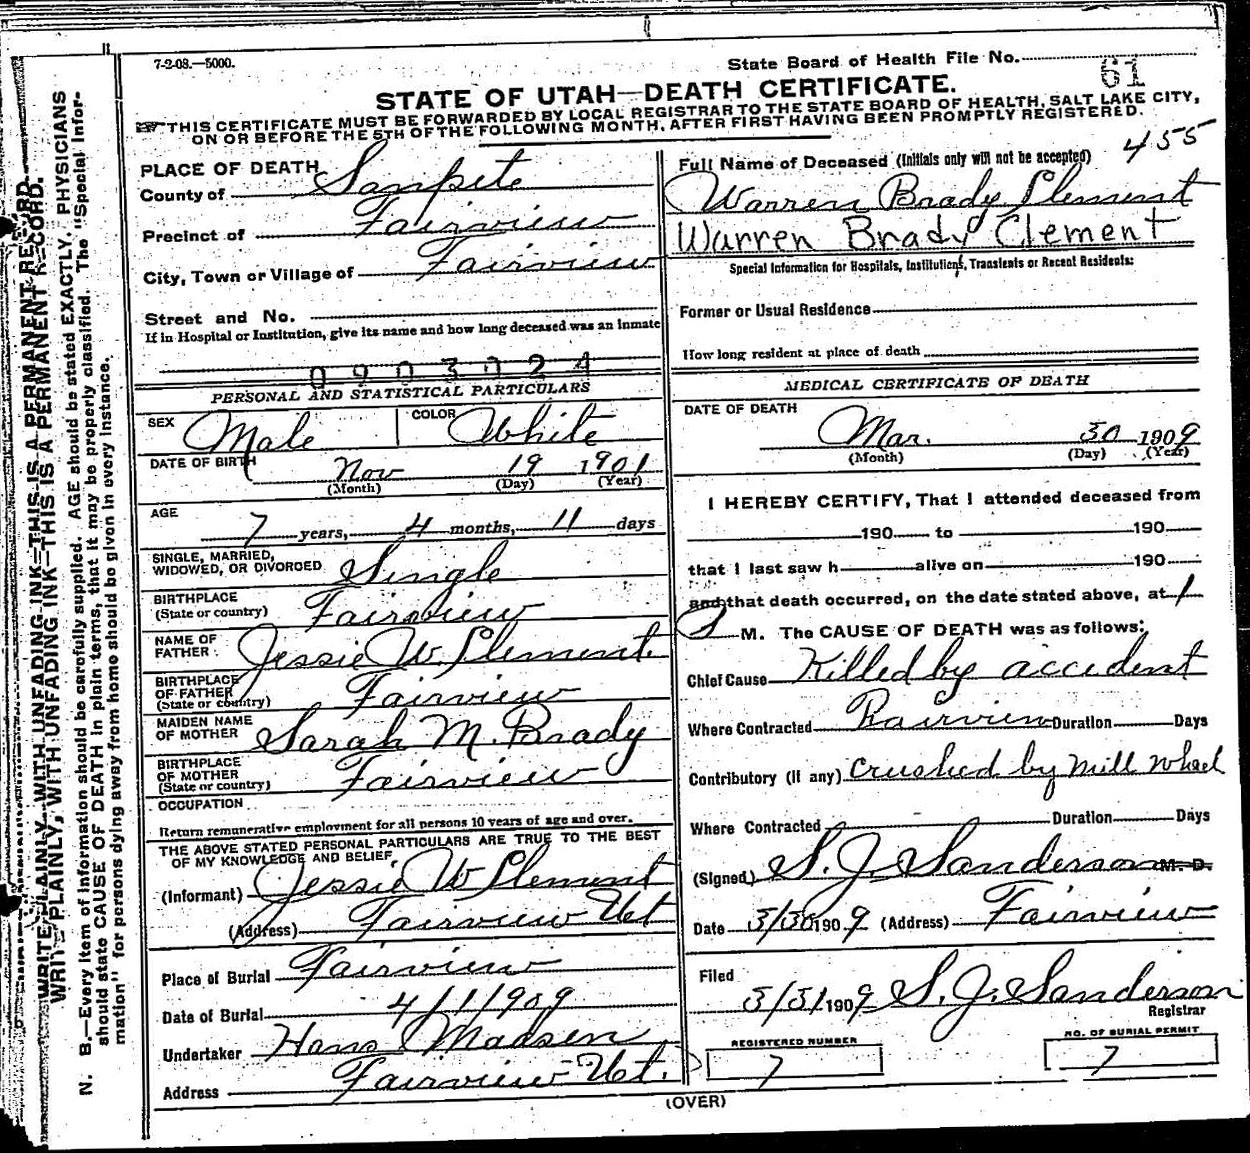 7-2-08.—5000.
State Board of Health File No. 61
STATE OF UTAH—DEATH CERTIFICATE.
THIS CERTIFICATE MUST BE FORWARDED BY LOCAL REGISTRAR TO THE STATE BOARD OF HEALTH, SALT LAKE CITY,
ON OR BEFORE THE 5TH OF THE FOLLOWING MONTH, AFTER FIRST HAVING BEEN PROMPTLY REGISTERED.
455
PLACE OF DEATH
County of Sanpete
Precinct of Fairview
City, Town or Village of Fairview
Street and No.
If in Hospital or Institution, give its name and how long deceased was an inmate
0903024
PERSONAL AND STATISTICAL PARTICULARS
SEX Male COLOR White
DATE OF BIRTH Nov 19 1901
(Month) (Day) (Year)
AGE
7 years, 4 months, 11 days
SINGLE, MARRIED,
WIDOWED, OR DIVORCED Single
BIRTHPLACE
(State or country) Fairview
NAME OF
FATHER Jessie W. Clement.
BIRTHPLACE
OF FATHER
(State or country) Fairview
MAIDEN NAME
OF MOTHER Sarah M. Brady
BIRTHPLACE
OF MOTHER
(State or country) Fairview
OCCUPATION
Return remunerative employment for all persons 10 years of age and over.
THE ABOVE STATED PERSONAL PARTICULARS ARE TRUE TO THE BEST
OF MY KNOWLEDGE AND BELIEF.
(Informant) Jessie W Clement
(Address) Fairview Ut
Place of Burial Fairview
Date of Burial 4/1/1909
Undertaker Hans Madsen
Address Fairview Ut.
Full Name of Deceased (Initials only will not be accepted)
Warren Brady Clement
Warren Brady Clement
Special Information for Hospitals, Institutions, Transients or Recent Residents:
Former or Usual Residence
How long resident at place of death
MEDICAL CERTIFICATE OF DEATH
DATE OF DEATH
Mar. 30 1909
(Month) (Day) (Year)
I HEREBY CERTIFY, That I attended deceased from
190 to 190
that I last saw h alive on 190
and that death occurred, on the date stated above, at 1
M. The CAUSE OF DEATH was as follows:
Chief Cause Killed by accident
Where Contracted Fairview Duration Days
Contributory (if any) Crushed by Mill Wheel
Where Contracted Duration Days
(Signed) S. J. Sanderson M. D.
Date 3/30 1909 (Address) Fairview
Filed
3/31 1909 S. J. Sanderson
Registrar
REGISTERED NUMBER
7
NO. OF BURIAL PERMIT
7
(OVER)
WRITE PLAINLY, WITH UNFADING INK—THIS IS A PERMANENT RECORD.
WRITE PLAINLY, WITH UNFADING INK—THIS IS A PERMANENT RECORD.
N. B.—Every item of information should be carefully supplied. AGE should be stated EXACTLY. PHYSICIANS
should state CAUSE OF DEATH in plain terms, that it may be properly classified. The "Special Infor-
mation" for persons dying away from home should be given in every instance.